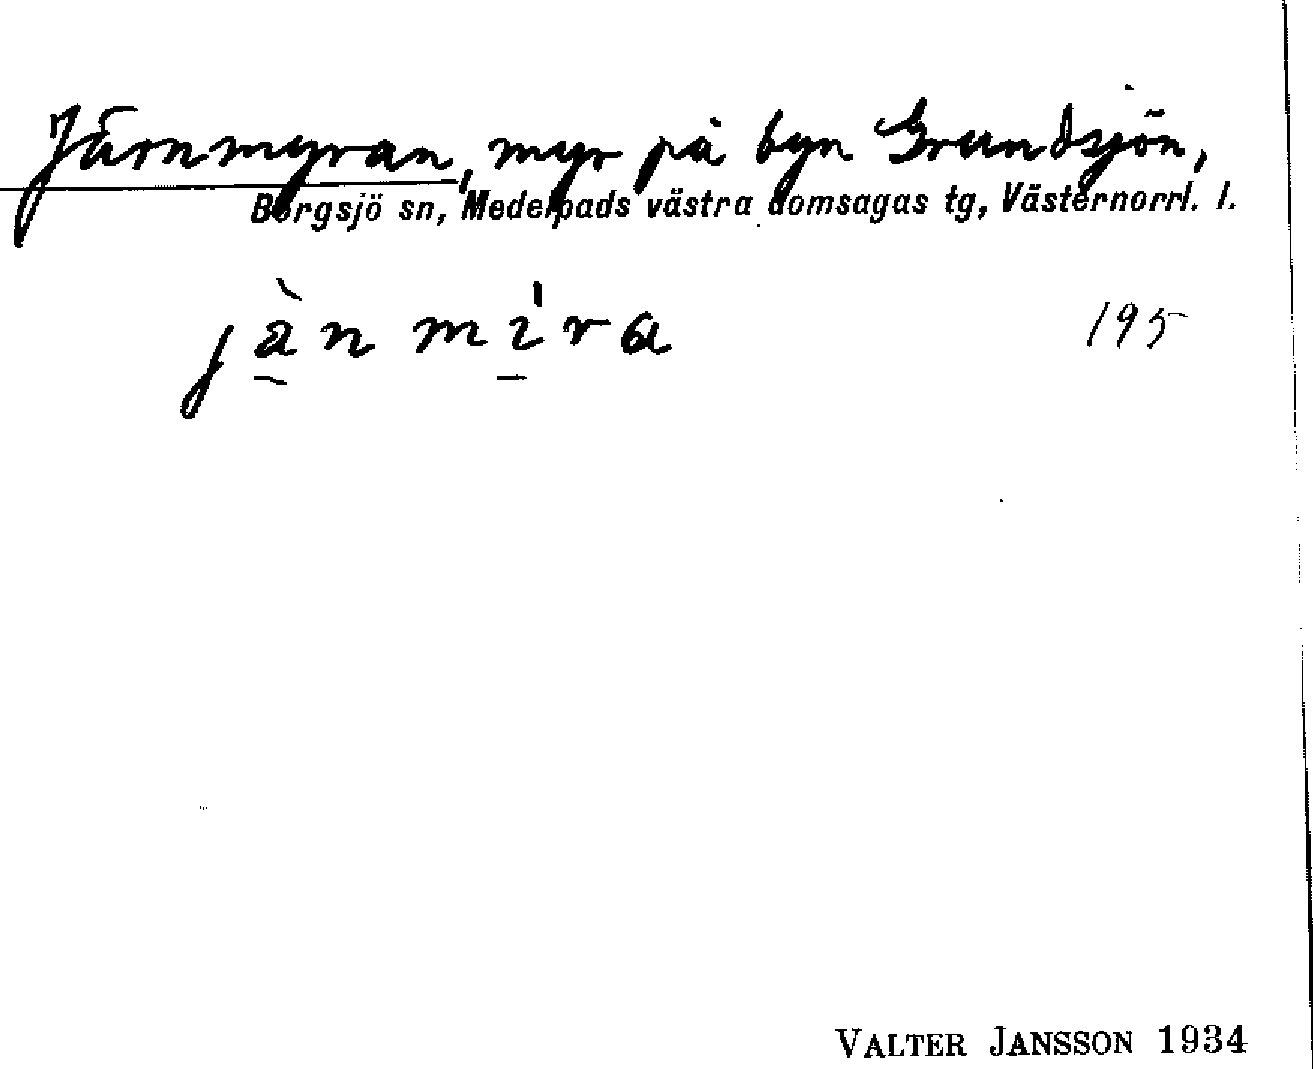 Järnmyran, myr på byn Grundsjön,
Borgsjö sn, Medelpads västra domsagas tg, Västernorrl. l.
jàn mi̍ra 195
VALTER JANSSON 1934